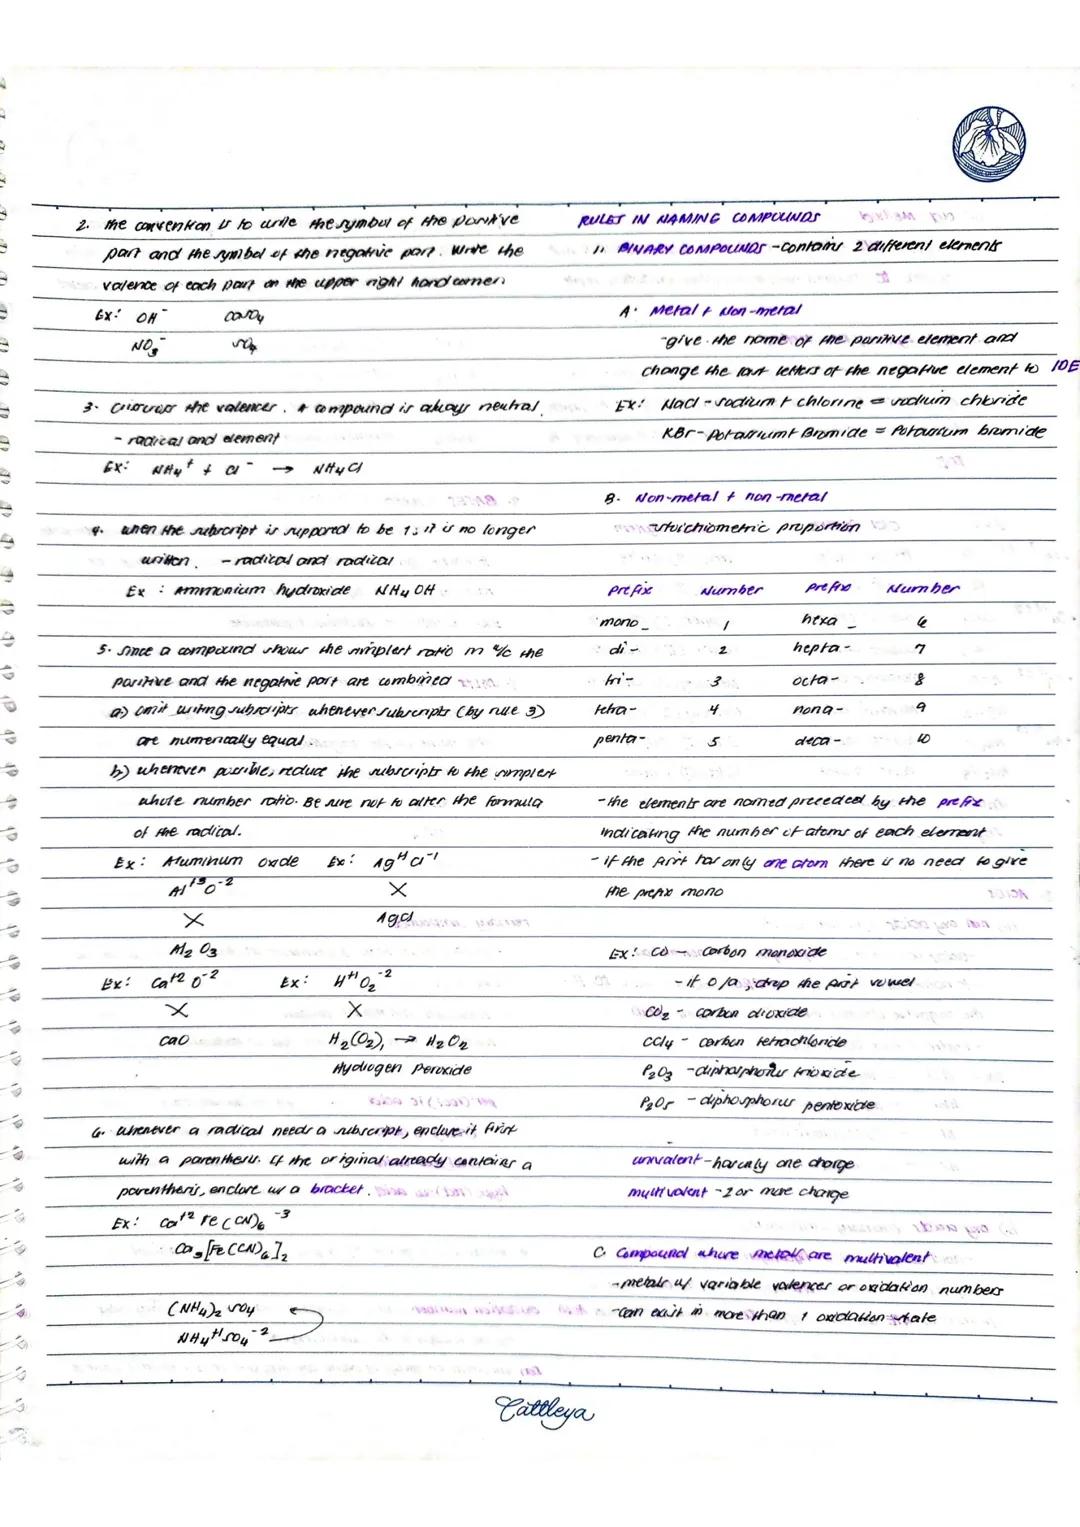 2. the convention is to write the symbol of the positive
part and the symbol of the negative part. Write the
valence of each part on the upper right hand corner.
Ex: OH⁻ CaSO₄
NO₃⁻ SO₄
3. Crisscross the valences. A compound is always neutral.
- radical and element
Ex: NH₄⁺ + Cl⁻ → NH₄Cl
4. when the subscript is supposed to be 1; it is no longer
written. - radical and radical
Ex : Ammonium hydroxide NH₄OH
5. since a compound shows the simplest ratio in w/c the
positive and the negative part are combined
a) Omit writing subscripts whenever subscripts (by rule 3)
are numerically equal.
b) whenever possible, reduce the subscripts to the simplest
whole number ratio. Be sure not to alter the formula
of the radical.
Ex: Aluminum oxide Ex: Ag⁺¹ Cl⁻¹
Al⁺³O⁻² X
X AgCl
Al₂O₃
Ex: Ca⁺² O⁻² Ex: H⁺¹ O₂⁻²
X X
CaO H₂(O₂)₁ → H₂O₂
Hydrogen Peroxide
6. Whenever a radical needs a subscript, enclose it first
with a parenthesis. If the original already contains a
parenthesis, enclose w/ a bracket.
Ex: Ca⁺² Fe(CN)₆⁻³
Ca₃[Fe(CN)₆]₂
(NH₄)₂ SO₄
NH₄⁺¹ SO₄⁻²
RULES IN NAMING COMPOUNDS
1. BINARY COMPOUNDS - contains 2 different elements
A. Metal + Non-metal
-give the name of the positive element and
change the last letters of the negative element to IDE
Ex: NaCl - sodium + chlorine = sodium chloride
KBr - Potassium + Bromide = Potassium bromide
B. Non-metal + non-metal
-stoichiometric proportion
prefix Number prefix Number
mono_ 1 hexa_ 6
di- 2 hepta- 7
tri- 3 octa- 8
tetra- 4 nona- 9
penta- 5 deca- 10
-the elements are named preceded by the prefix
indicating the number of atoms of each element
- if the first has only one atom there is no need to give
the prefix mono
Ex: CO - carbon monoxide
- if o/a, drop the first vowel
CO₂ - carbon dioxide
CCl₄ - carbon tetrachloride
P₂O₃ - diphosphorus trioxide
P₂O₅ - diphosphorus pentoxide
univalent - has only one charge
multivalent - 2 or more charge
C. Compound where metals are multivalent
- metals w/ variable valences or oxidation numbers
-can exist in more than 1 oxidation state
Cattleya